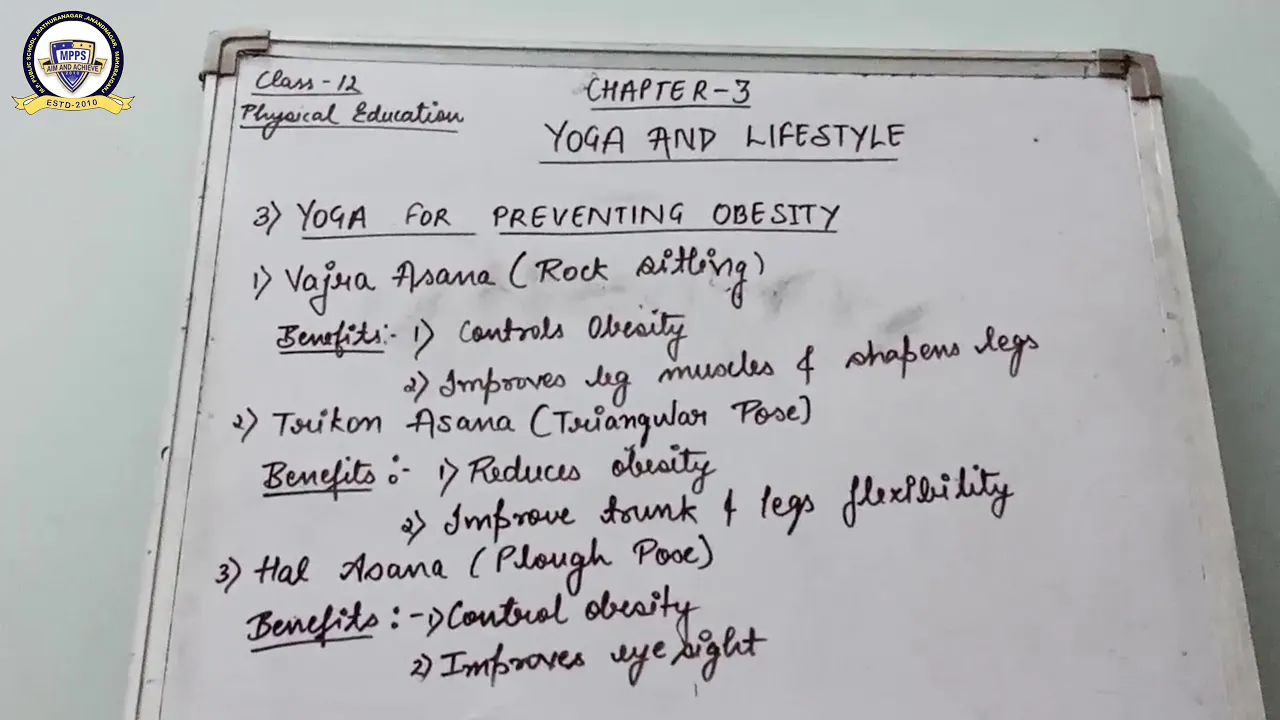 M.P. PUBLIC SCHOOL, MATHURANAGAR, ANANDNAGAR, MAHARAJGANJ
MPPS
AIM AND ACHIEVE
ESTD-2010
Class-12
Physical Education
CHAPTER-3
YOGA AND LIFESTYLE
3) YOGA FOR PREVENTING OBESITY
1) Vajra Asana (Rock sitting)
Benefits:- 1) Controls Obesity
2) Improves leg muscles & shapens legs
2) Trikon Asana (Triangular Pose)
Benefits:- 1) Reduces obesity
2) Improve trunk & legs flexibility
3) Hal Asana (Plough Pose)
Benefits:- 1) Control obesity
2) Improves eye sight